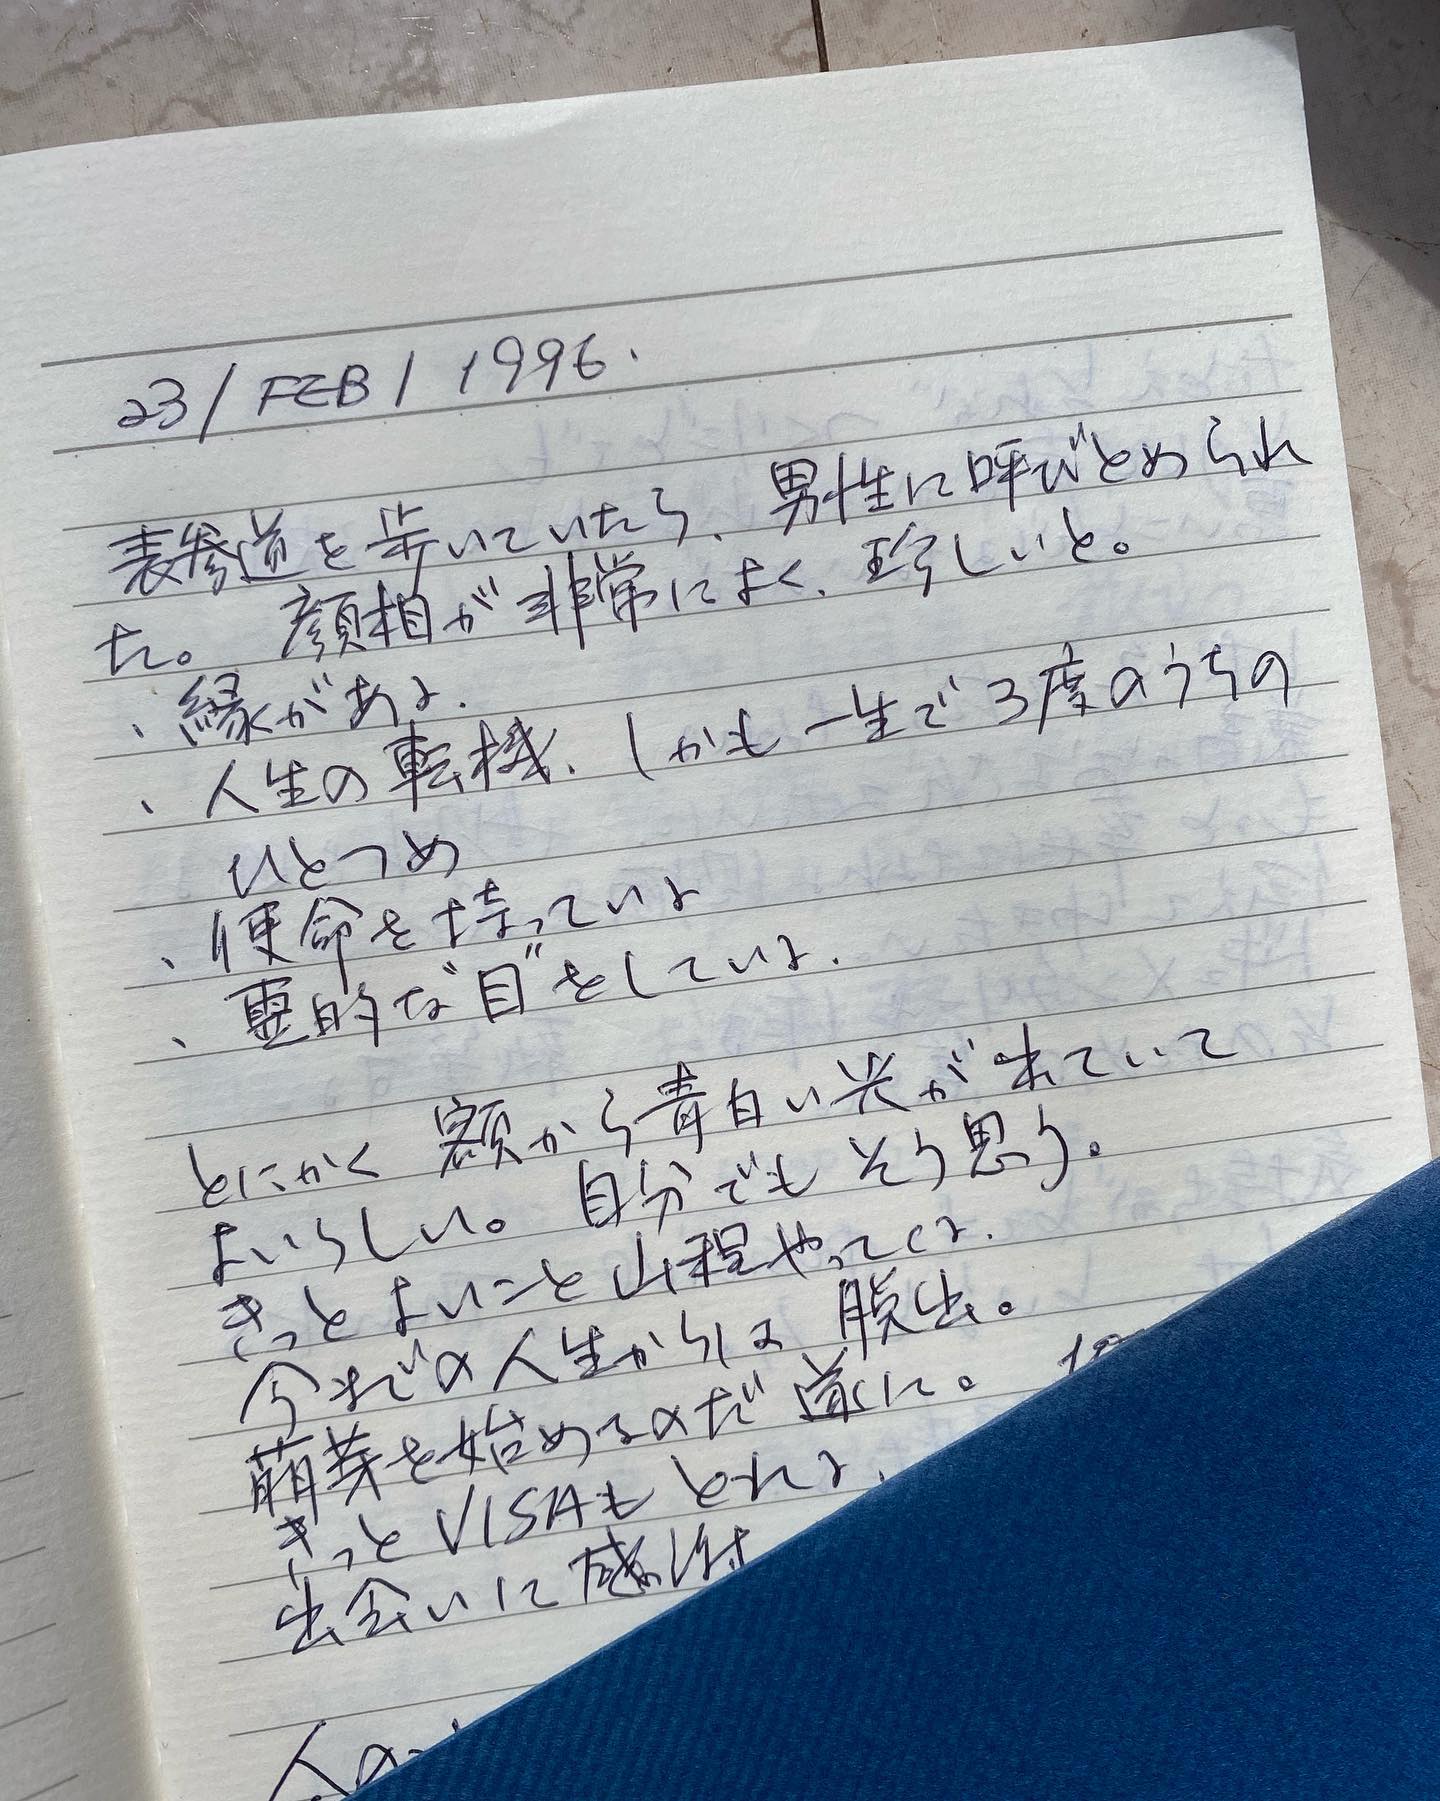 23/FEB/1996.
表参道を歩いていたら、男性に呼びとめられ
た。顔相が非常によく、珍しいと。
、縁がある。
、人生の転機、しかも一生で3度のうちの
ひとつめ
、使命を持っている
、霊的な"目"をしている。
とにかく額から青白い光が出ていて
よいらしい。自分でもそう思う。
きっとよいこと山程やってくる。
今までの人生からは脱出。
萌芽を始めるのだ 道に。
きっとVISAもとれる。
出会いに感謝
人の